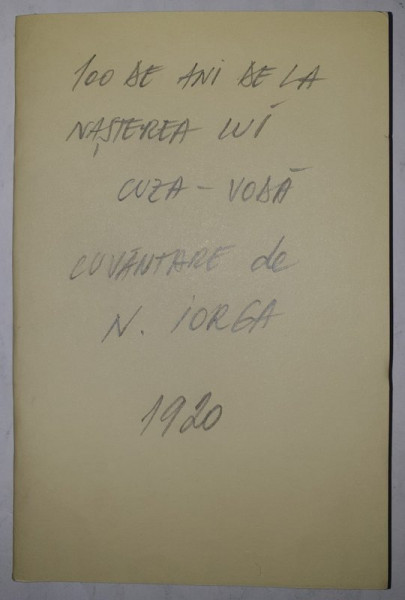 100 DE ANI DE LA
NAȘTEREA LUI
CUZA - VODĂ
CUVÂNTARE de
N. IORGA
1920